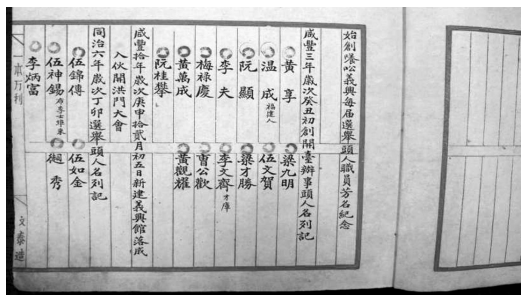 始創孻𠵇義興每届選舉頭人職員芳名紀念
咸豐三年歲次癸丑初創開臺辦事頭人名列記
黃享 梁九明
温成 福建人 伍文賀
阮顯 梁才勝
李夫 李文齋 才庫
梅祿慶 曹公歡
黃萬成 黃觀耀
阮桂攀
咸豐拾年歲次庚申拾貳月初五日新建義興館落成
入伙開洪門大會
同治六年歲次丁卯選舉頭人名列記
伍錦傳 伍如金
伍神錫 趙秀
李炳富